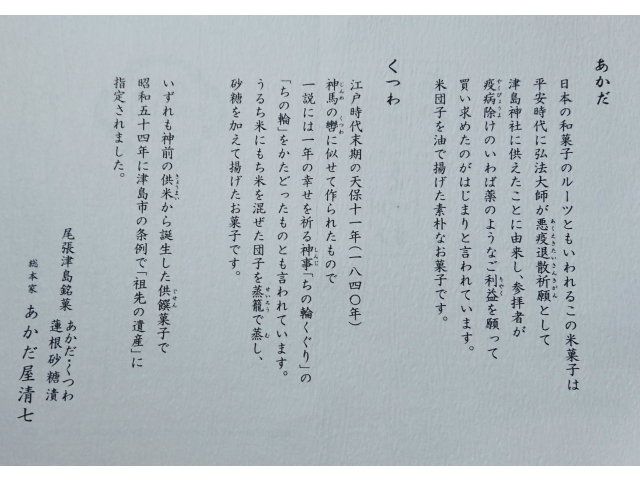 あかだ
日本の和菓子のルーツともいわれるこの米菓子は
平安時代に弘法大師が悪疫退散祈願として
津島神社に供えたことに由来し、参拝者が
疫病除けのいわば薬のようなご利益を願って
買い求めたのがはじまりと言われています。
米団子を油で揚げた素朴なお菓子です。
くつわ
江戸時代末期の天保十一年(一八四〇年)
神馬の轡に似せて作られたもので
一説には一年の幸せを祈る神事「ちの輪くぐり」の
「ちの輪」をかたどったものとも言われています。
うるち米にもち米を混ぜた団子を蒸籠で蒸し、
砂糖を加えて揚げたお菓子です。
いずれも神前の供米から誕生した供饌菓子で
昭和五十四年に津島市の条例で「祖先の遺産」に
指定されました。
尾張津島銘菓 あかだ・くつわ
蓮根砂糖漬
総本家 あかだ屋清七